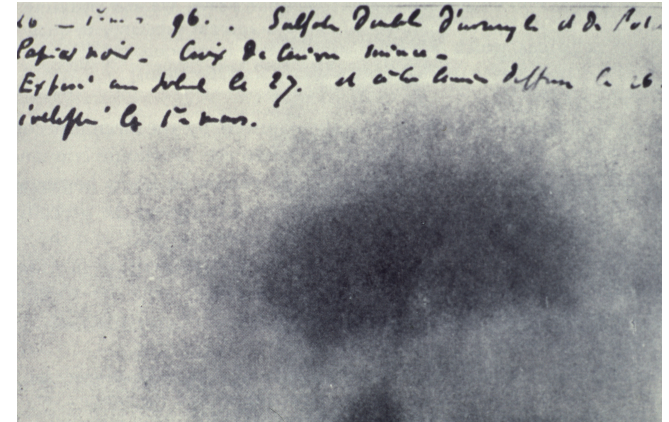 96. Sulfate double d'uranyle et de Pot
Papier noir. Croix de cuivre mince.
Exposé au soleil le 27. et à la lumière diffuse le 26.
le 1er mars.